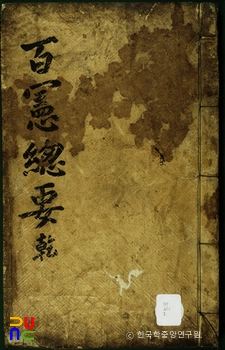 百憲總要 乾
© 한국학중앙연구원